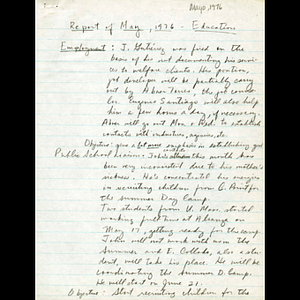 Mayo, 1976
Report of May, 1976 - Education
Employment: J. Gutierrez was fired on the
basis of his not documenting his servi-
ces to welfare clients. His position,
job developer will be partially carry
out by Aban Torres, the job counse-
lor. Eugene Santiago will also help
him a few hours a day, if necessary.
Aban will go out Mon. & Wed. to establish
contacts with industries, agencies, etc.
Objective: give a lot more emphasis in establishing good
Public School Liaison: John's this month has
been very inconsistent due to his mother's
sickness. He's concentrated his energies
on recruiting children from C. Aunt for
the Summer Day Camp.
Two students from U. Mass. started
working full time at
May 17, getting ready for the camp.
John will not work with mom the
Summer and E. Collado, also a stu-
dent, will take his place. He will be
coordinating the Summer D. Camp.
He will start on June 21.
Objective: Start recruiting children for the